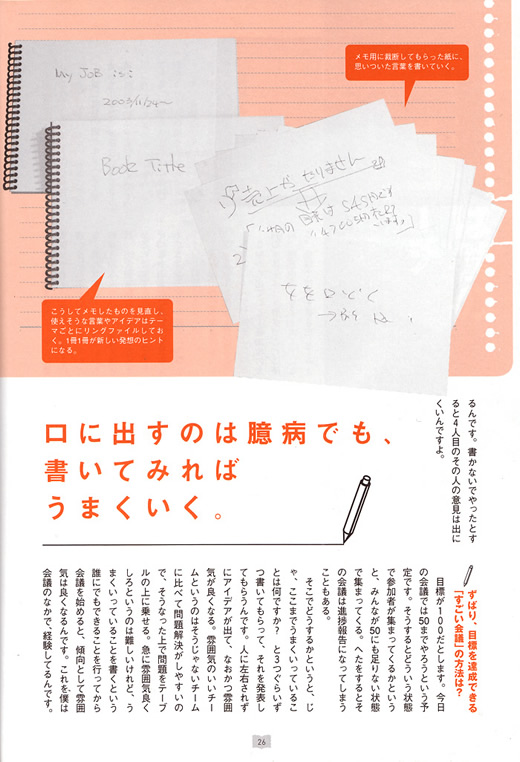 My JOB
2003/11/24〜
Book Title
メモ用に裁断してもらった紙に、
思いついた言葉を書いていく。
売上が たりません
こうしてメモしたものを見直し、
使えそうな言葉やアイデアはテー
マごとにリングファイルしてお
く。1冊1冊が新しい発想のヒント
になる。
口に出すのは臆病でも、
書いてみれば
うまくいく。
るんです。書かないでやったとす
ると4人目のその人の意見は出に
くいんですよ。
ずばり、目標を達成できる
「すごい会議」の方法は?
目標が100だとします。今日
の会議では50までやろうという予
定です。そうするとどういう状態
で参加者が集まってくるかという
と、みんなが50にも足りない状態
で集まってくる。へたをするとそ
の会議は進捗報告になってしまう
こともある。
そこでどうするかというと、じ
ゃ、ここまでうまくいっているこ
とは何ですか? と3つぐらいず
つ書いてもらって、それを発表し
てもらうんです。人に左右されず
にアイデアが出て、なおかつ雰囲
気が良くなる。雰囲気のいいチー
ムというのはそうじゃないチーム
に比べて問題解決がしやすいの
で、そうなった上で問題をテーブ
ルの上に乗せる。急に雰囲気良く
しろというのは難しいけれど、う
まくいっていることを書くという
誰にでもできることを行ってから
会議を始めると、傾向として雰囲
気は良くなるんです。これを僕は
会議のなかで、経験してるんです。
26